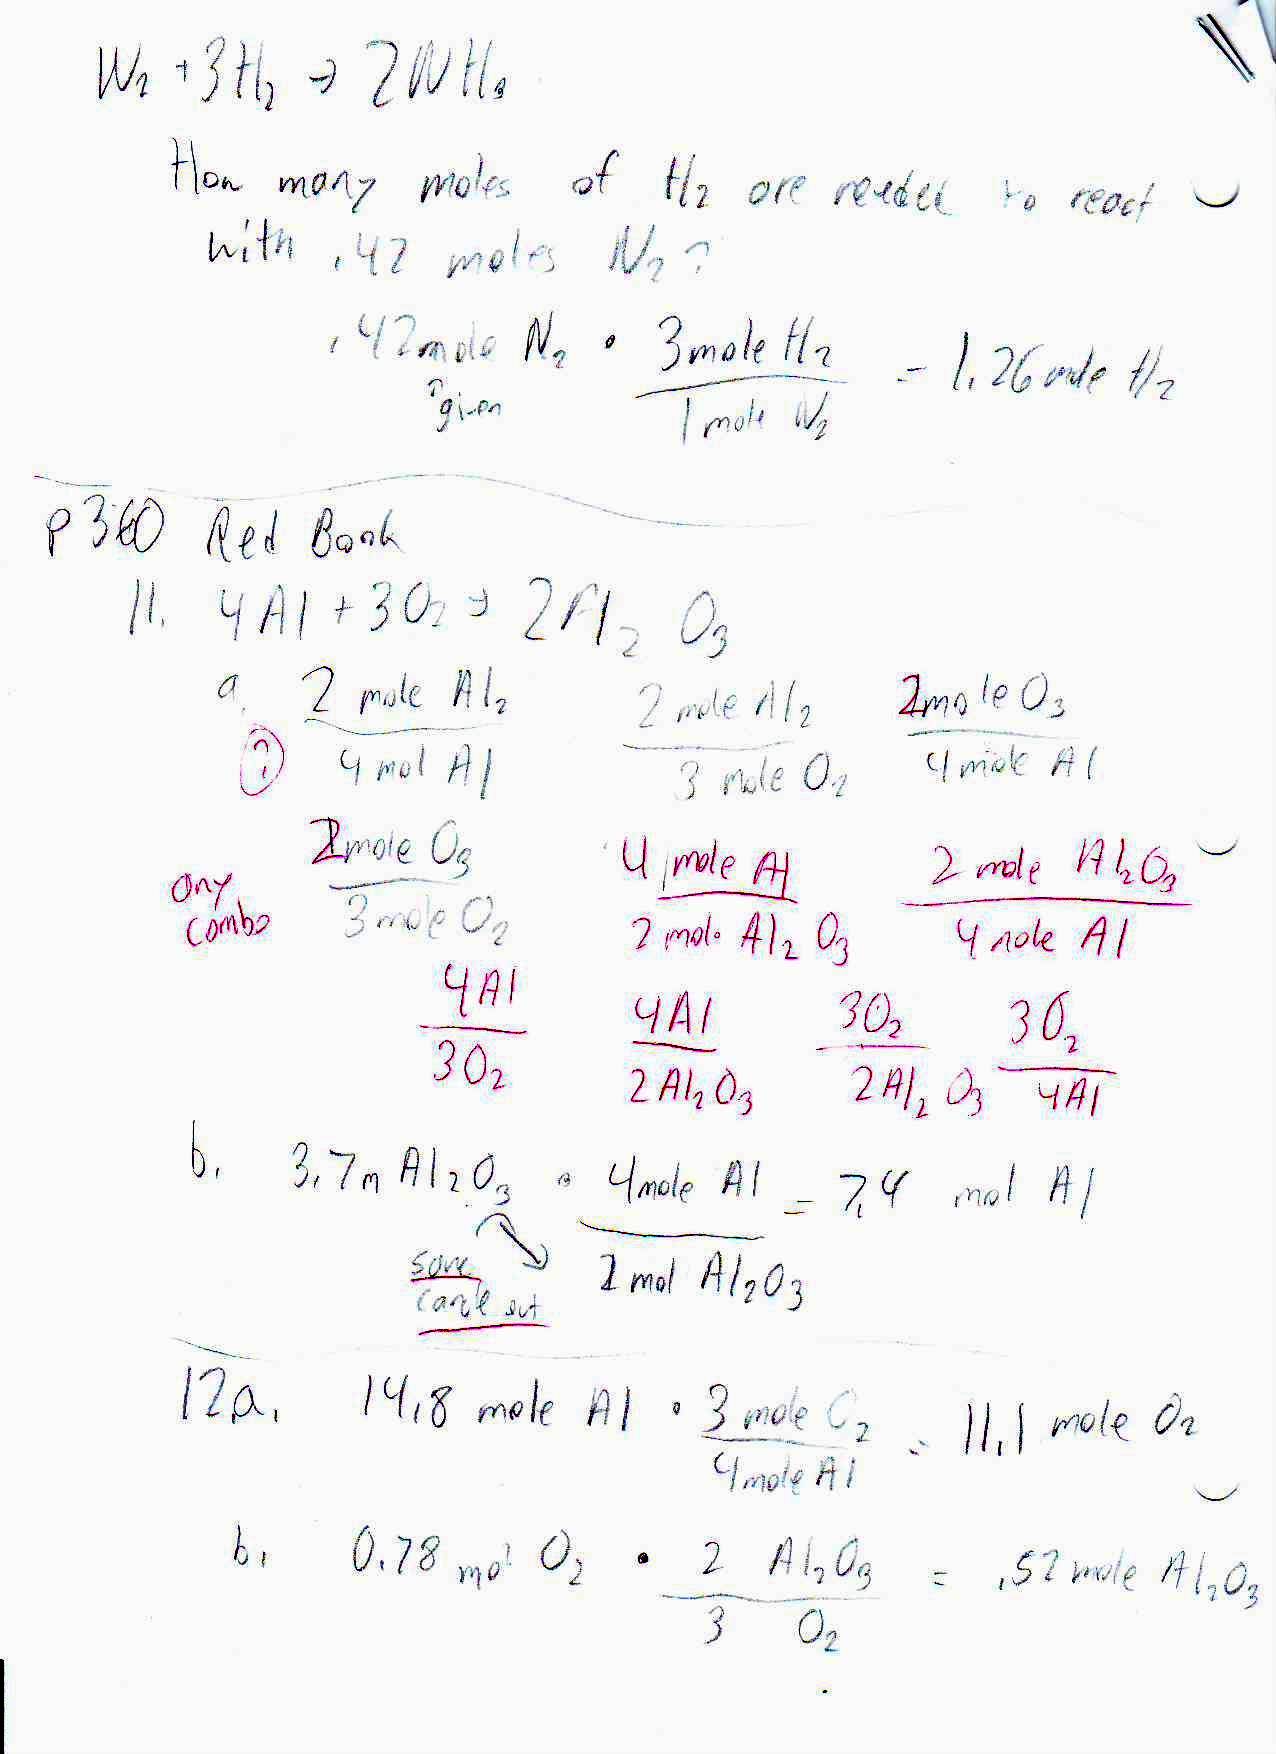 N₂ + 3H₂ → 2NH₃
How many moles of H₂ are needed to react
with .42 moles N₂?
.42 mole N₂ • 3 mole H₂ / 1 mole N₂ = 1.26 mole H₂
↑ given
p 360 Red Book
11. 4Al + 3O₂ → 2Al₂O₃
a. 2 mole Al₂ / 4 mol Al   2 mole Al₂ / 3 mole O₂   2 mole O₃ / 4 mole Al
?
2 mole O₃ / 3 mole O₂   4 mole Al / 2 mole Al₂O₃   2 mole Al₂O₃ / 4 mole Al
any
combo
4Al / 3O₂   4Al / 2Al₂O₃   3O₂ / 2Al₂O₃   3O₂ / 4Al
b. 3.7m Al₂O₃ • 4 mole Al / 2 mol Al₂O₃ = 7.4 mol Al
same
cancle out
12a. 14.8 mole Al • 3 mole O₂ / 4 mole Al = 11.1 mole O₂
b. 0.78 mol O₂ • 2 Al₂O₃ / 3 O₂ = .52 mole Al₂O₃